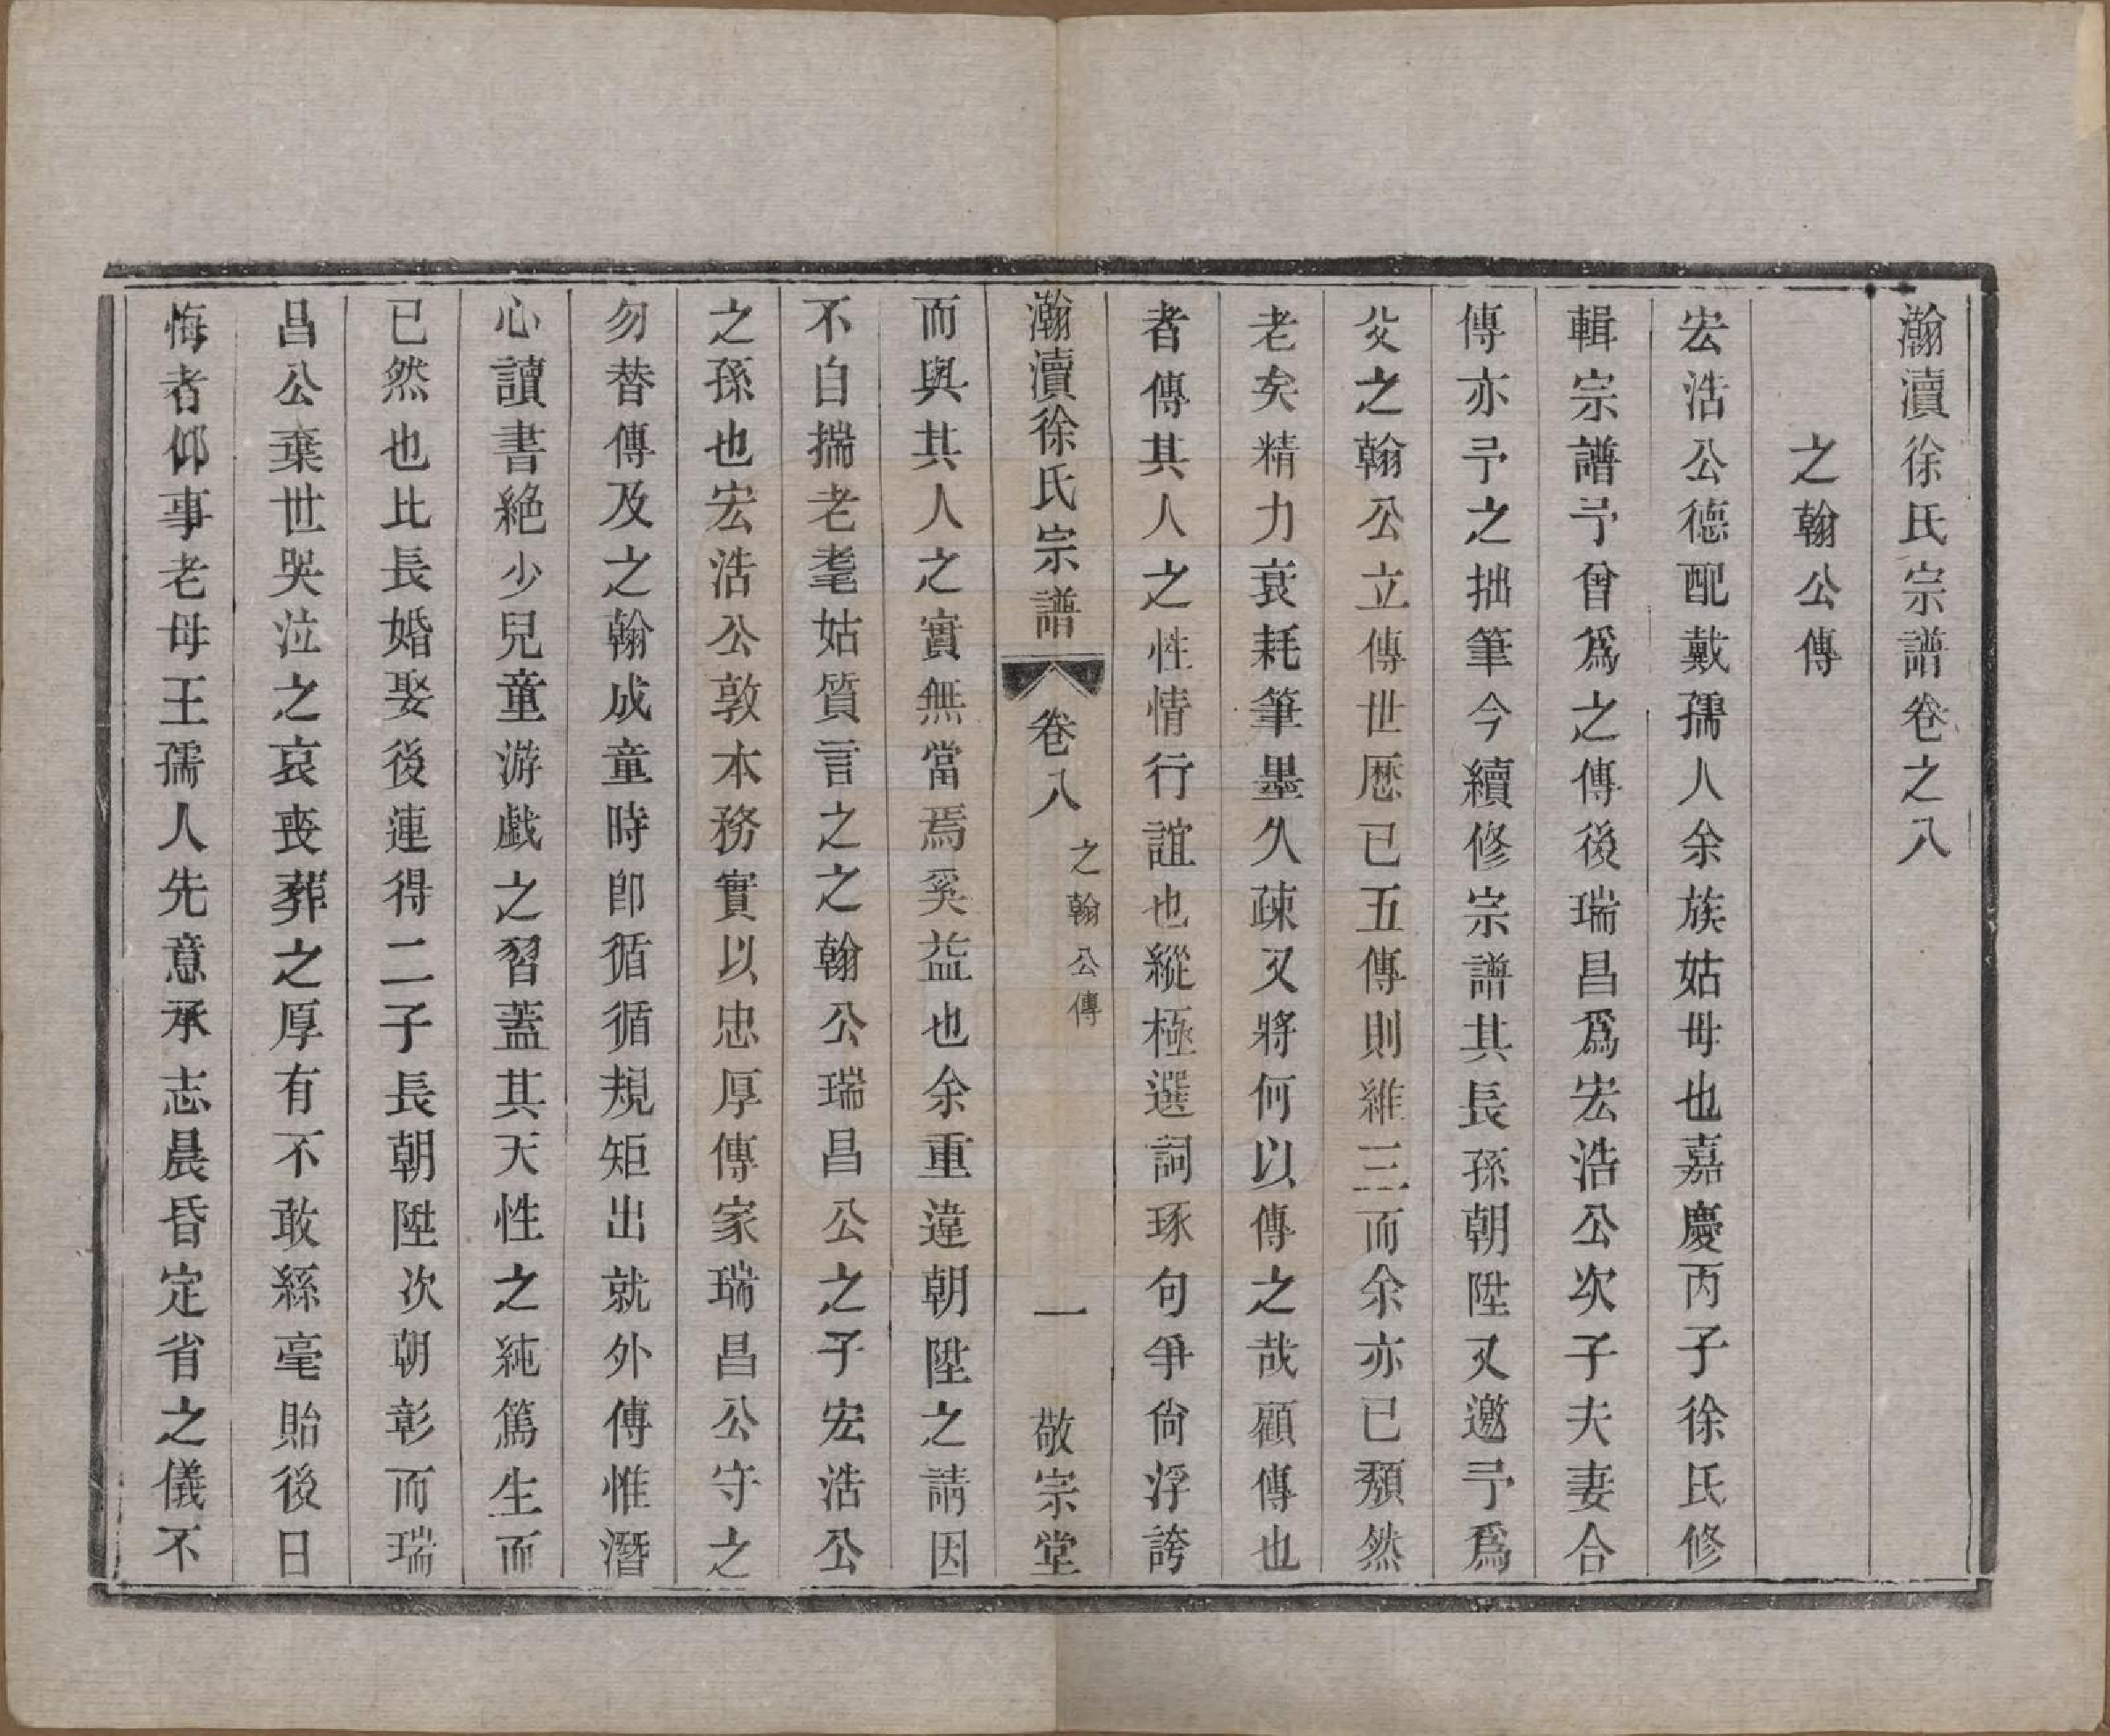 瀚瀆徐氏宗譜卷之八
之翰公傳
宏浩公德配戴孺人余族姑毋也嘉慶丙子徐氏修
輯宗譜予曾爲之傳後瑞昌爲宏浩公次子夫妻合
傳亦予之拙筆今續修宗譜其長孫朝陞又邀予爲
父之翰公立傳世歷已五傳則維三而余亦已頽然
老矣精力衰耗筆墨久疎又將何以傳之哉顧傳也
者傳其人之性情行誼也縱極選詞琢句爭尙浮誇
瀚瀆徐氏宗譜 卷八 之翰公傳 一 敬宗堂
而與其人之實無當焉奚益也余重違朝陞之請因
不自揣老耄姑質言之之翰公瑞昌公之子宏浩公
之孫也宏浩公敦本務實以忠厚傳家瑞昌公守之
勿替傳及之翰成童時卽循循規矩出就外傅惟潛
心讀書絶少兒童游戲之習蓋其天性之純篤生而
已然也比長婚娶後連得二子長朝陞次朝彰而瑞
昌公棄世哭泣之哀喪葬之厚有不敢絲毫貽後日
悔者仰事老母王孺人先意承志晨昏定省之儀不